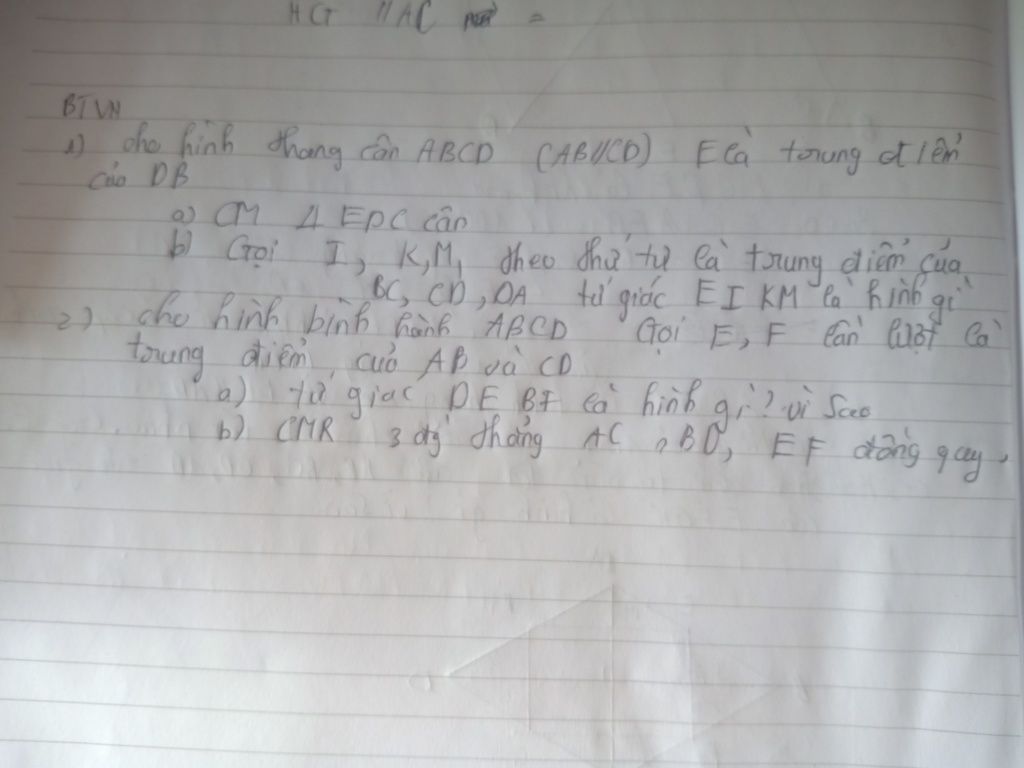 HG // AC =
BTVN
1) cho hình thang cân ABCD (AB//CD) E là trung điểm
của DB
a) CM Δ EDC cân
b) Gọi I, K, M, theo thứ tự là trung điểm của
BC, CD, DA tứ giác EIKM là hình gì
2) cho hình bình hành ABCD Gọi E, F lần lượt là
trung điểm của AB và CD
a) tứ giac DEBF là hình gì? vì sao
b) CMR 3 đg thẳng AC, BD, EF đồng quy,